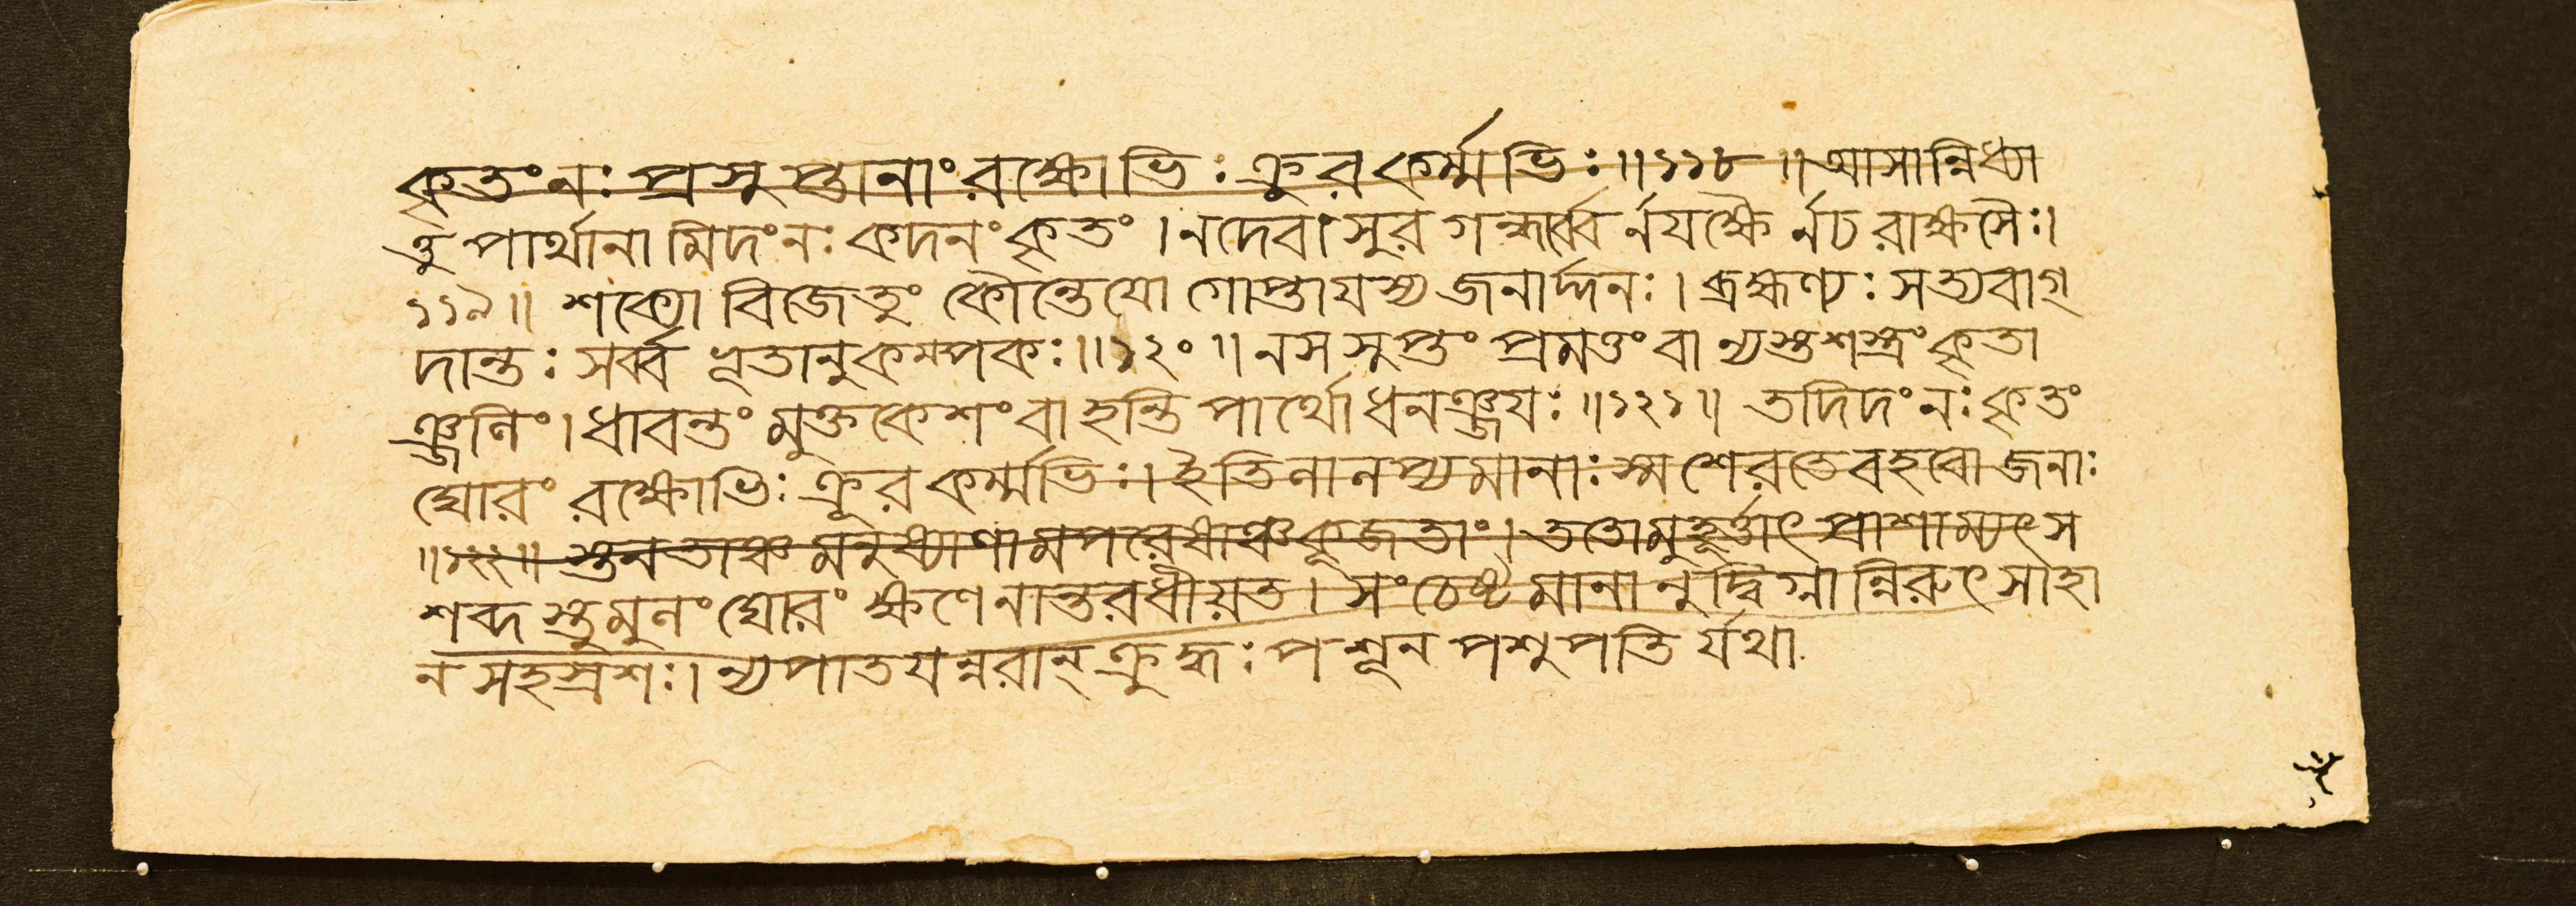 কৃতং নঃ প্রসুপ্তানাং রক্ষোভিঃ ক্রুরকর্ম্মভিঃ ॥ ১১৮ ॥ আসান্নিধ্যা
ত্তু পার্থানামিদং নঃ কদনং কৃতং । ন দেবাসুরগন্ধর্ব্বৈর্ন যক্ষৈর্ন চ রাক্ষসৈঃ ।
১১৯ ॥ শক্যো বিজেতুং কৌন্তেয়ো গোপ্তা যস্য জনার্দ্দনঃ । ব্রহ্মণ্যঃ সত্যবাগ্
দান্তঃ সর্ব্বভূতানুকম্পকঃ ॥ ১২০ ॥ ন স সুপ্তং প্রমত্তং বা ন্যস্তশস্ত্রং কৃতা
ঞ্জলিং । ধাবন্তং মুক্তকেশং বা হন্তি পার্থো ধনঞ্জয়ঃ ॥ ১২১ ॥ তদিদং নঃ কৃতং
ঘোরং রক্ষোভিঃ ক্রূরকর্ম্মভিঃ । ইতি লালপ্যমানাঃ স্ম শেরতে বহবো জনাঃ
॥ ১২২ ॥ স্তনতাঞ্চ মনুষ্যাণামপরেষাঞ্চ কূজতাং । ততো মুহূর্ত্তাৎ প্রাশাম্যৎ স
শব্দস্তুমুলং ঘোরং ক্ষণেনান্তরধীয়ত । সংচেষ্টমানানুদ্বিগ্নান্নিরুৎসাহা
ন সহস্রশঃ । ন্যপাতয়ন্নরান্ ক্রুদ্ধঃ পশূন পশুপতির্যথা